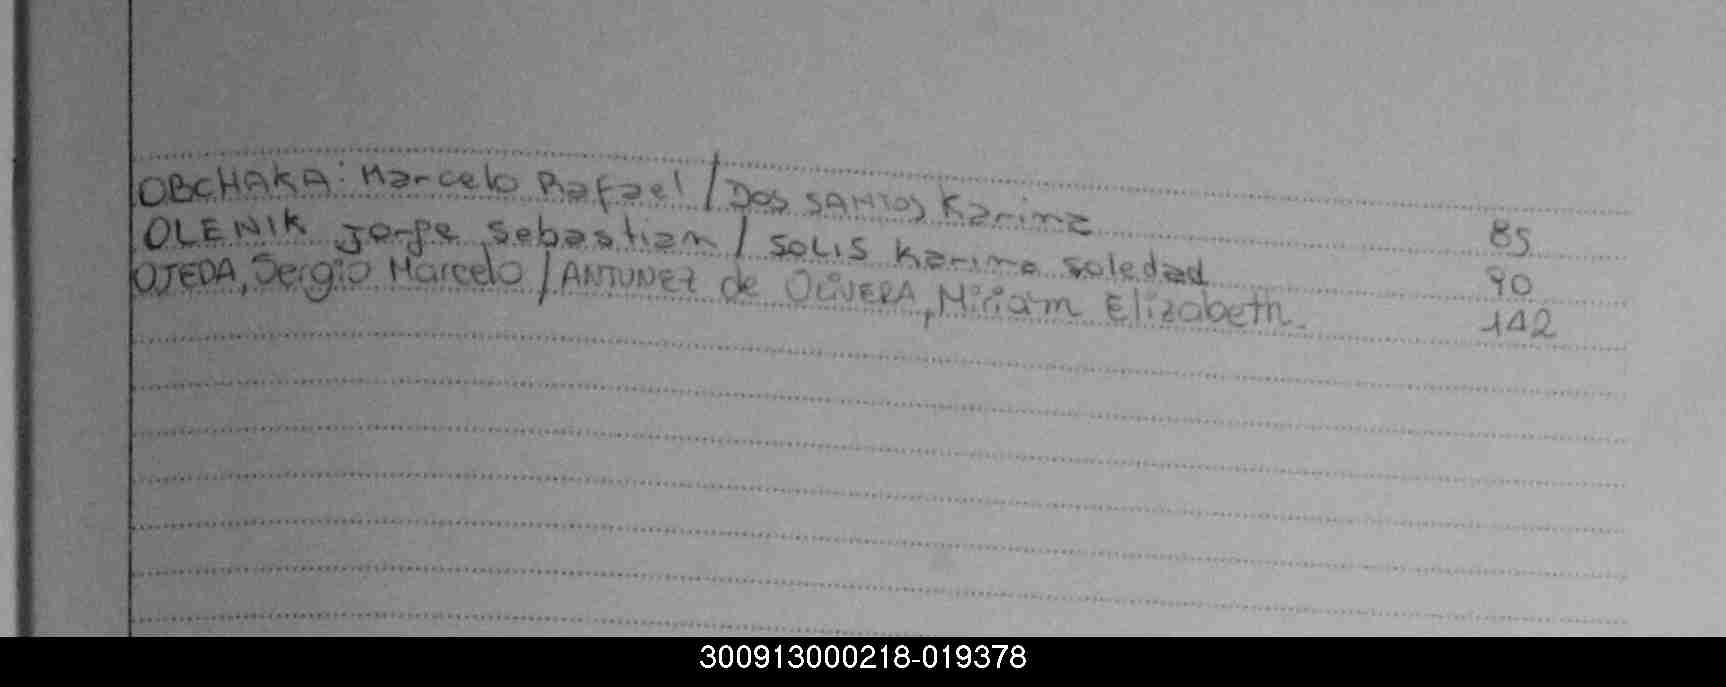 OBCHAKA: Marcelo Rafael / DOS SANTOS Karina 85
OLENIK Jorge Sebastian / SOLIS Karina Soledad 90
OJEDA, Sergio Marcelo / ANTUNEZ de OLIVERA, Miriam Elizabeth. 142
300913000218-019378